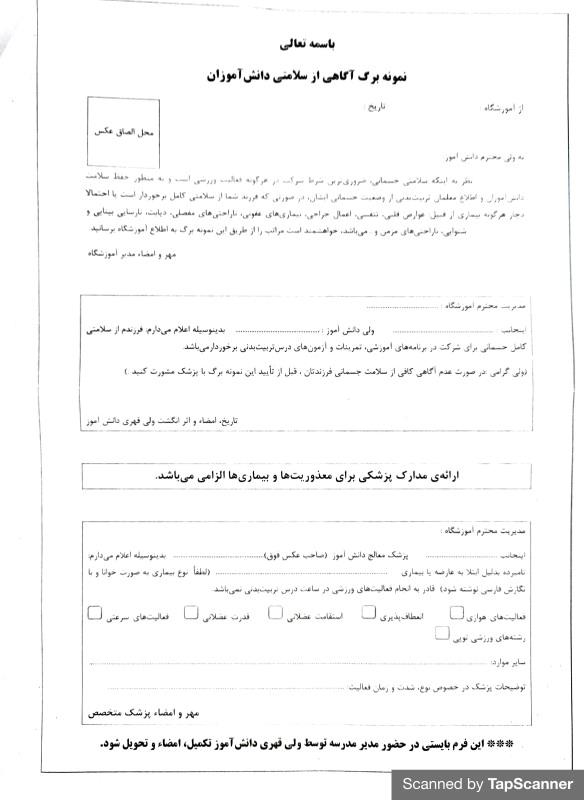 باسمه تعالی
نمونه برگ آگاهی از سلامتی دانش‌آموزان
از آموزشگاه :
تاریخ :
محل الصاق عکس
به ولی محترم دانش آموز
نظر به اینکه سلامتی جسمانی، ضروری‌ترین شرط شرکت در هرگونه فعالیت ورزشی است و به منظور حفظ سلامت
دانش‌آموزان و اطلاع معلمان تربیت‌بدنی از وضعیت جسمانی ایشان، در صورتی که فرزند شما از سلامتی کامل برخوردار است یا احتمالا
دچار هرگونه بیماری از قبیل عوارض قلبی، تنفسی، اعمال جراحی، بیماری‌های عفونی، ناراحتی‌های مفصلی، دیابت، نارسایی بینایی و
شنوایی، ناراحتی‌های مزمن و.. می‌باشد، خواهشمند است مراتب را از طریق این نمونه برگ به اطلاع آموزشگاه برسانید
مهر و امضاء مدیر آموزشگاه
مدیریت محترم آموزشگاه : ..............................
اینجانب : .............................. ولی دانش آموز : .............................. بدینوسیله اعلام می‌دارم: فرزندم از سلامتی
کامل جسمانی برای شرکت در برنامه‌های آموزشی، تمرینات و آزمون‌های درس‌تربیت‌بدنی برخوردارمی‌باشد.
(ولی گرامی :در صورت عدم آگاهی کافی از سلامت جسمانی فرزندتان ، قبل از تأیید این نمونه برگ با پزشک مشورت کنید .)
تاریخ، امضاء و اثر انگشت ولی قهری دانش آموز
ارائه‌ی مدارک پزشکی برای معذوریت‌ها و بیماری‌ها الزامی می‌باشد.
مدیریت محترم آموزشگاه :
اینجانب .............................. پزشک معالج دانش آموز (صاحب عکس فوق) .............................. بدینوسیله اعلام می‌دارم:
نامبرده بدلیل ابتلا به عارضه یا بیماری .............................. (لطفاً نوع بیماری به صورت خوانا و با
نگارش فارسی نوشته شود) قادر به انجام فعالیت‌های ورزشی در ساعت درس تربیت‌بدنی نمی‌باشد.
فعالیت‌های هوازی □ انعطاف‌پذیری □ استقامت عضلانی □ قدرت عضلانی □ فعالیت‌های سرعتی □
رشته‌های ورزشی توپی □
سایر موارد: ..............................
توضیحات پزشک در خصوص نوع، شدت و زمان فعالیت: ..............................
مهر و امضاء پزشک متخصص
*** این فرم بایستی در حضور مدیر مدرسه توسط ولی قهری دانش‌آموز تکمیل، امضاء و تحویل شود.
Scanned by TapScanner